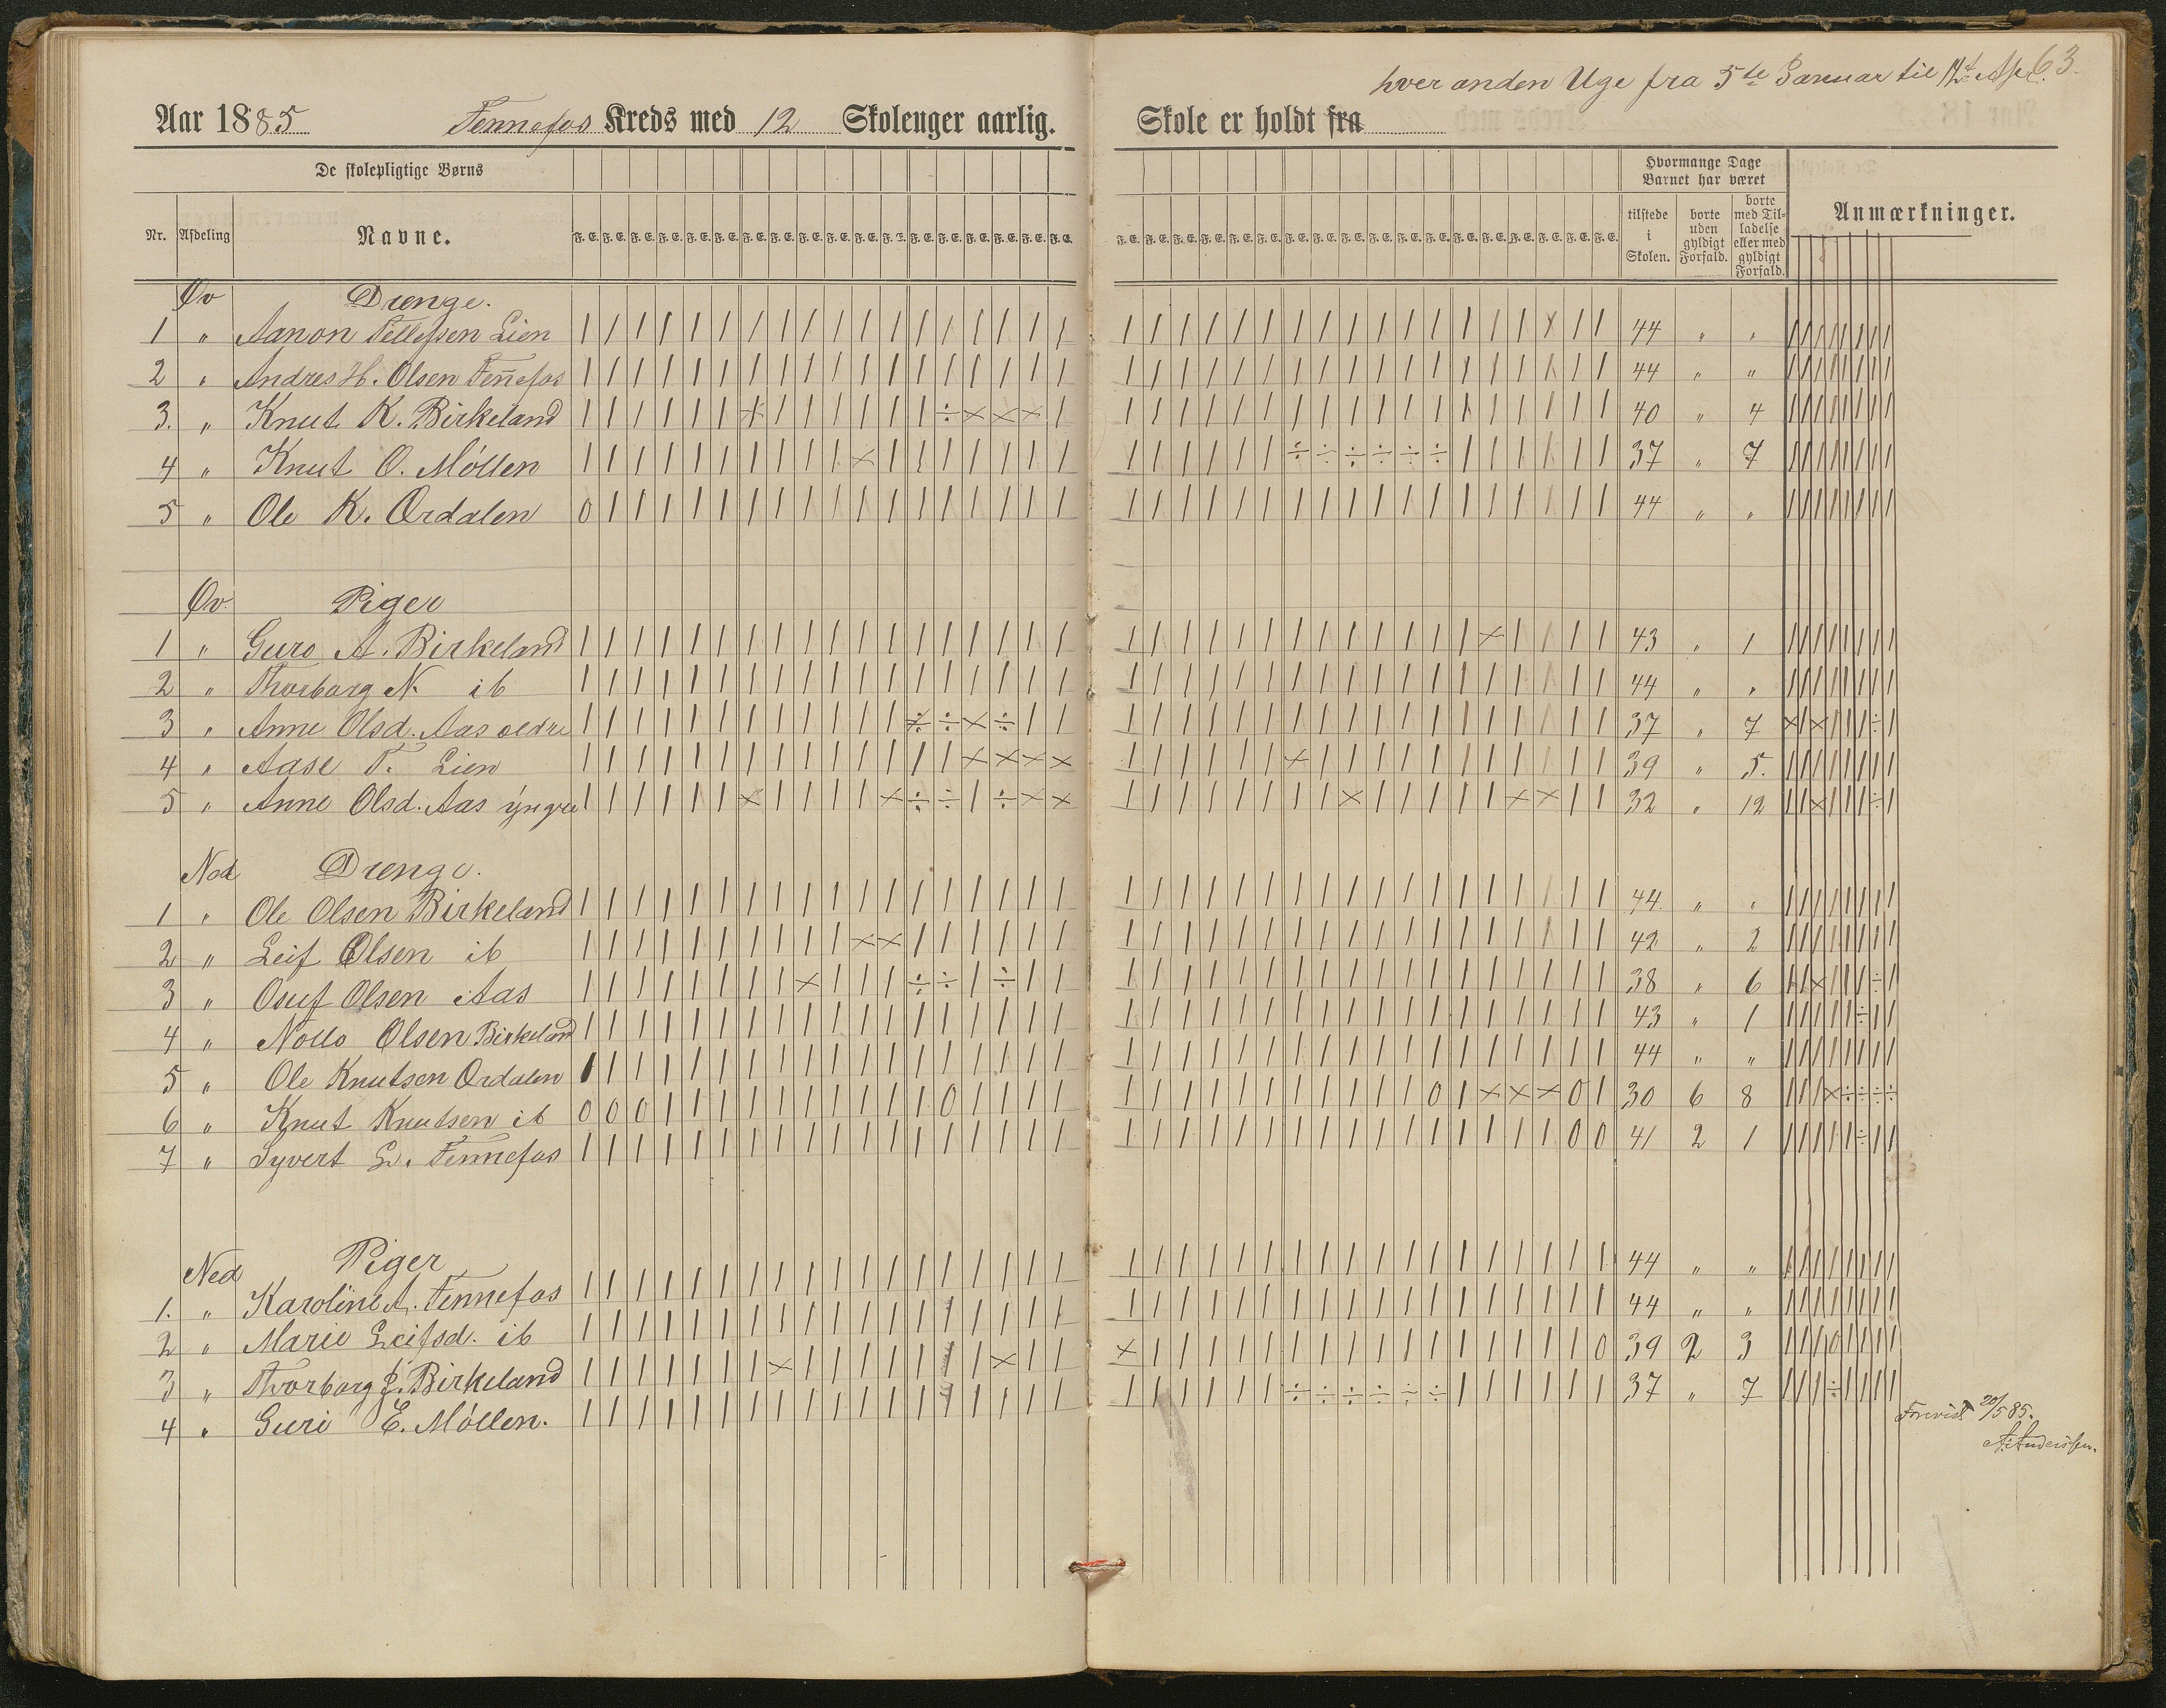 hver anden Uge fra 5te Januar til 12t Apr. 63.
Aar 1885 Fennefos Kreds med 12 Skoleuger aarlig. Skole er holdt fra
De skolepligtige Børns
Hvormange Dage Barnet har været
Nr. Afdeling Navne. F. E. F. E. F. E. F. E. F. E. F. E. F. E. F. E. F. E. F. E. F. E. F. E. F. E. F. E. F. E. F. E. F. E. F. E. F. E. F. E. F. E. F. E. F. E. F. E. F. E. F. E. F. E. F. E. F. E. F. E. F. E. F. E. F. E. F. E. F. E. F. E. tilstede i Skolen. borte uden gyldigt Forfald. borte med Tilladelse eller med gyldigt Forfald. Anmærkninger.
Øv Drenge.
1 " Aanon Tellefsen Lien 44 " "
2 " Andres H. Olsen Fennefos 44 " "
3. " Knut K. Birkeland 40 " 4
4 " Knut O. Möllen 37 " 7
5 " Ole K. Ordalen 44 " "
Øv. Piger
1 " Guro A. Birkeland 43 " 1
2 " Thorborg N. ib 44 " "
3 " Anne Olsd. Aas ældre 37 " 7
4 " Aase T. Lien 39 " 5.
5 " Anne Olsd. Aas yngre 32 " 12
Ned Drenge.
1 " Ole Olsen Birkeland 44 " "
2 " Leif Olsen ib 42 " 2
3 " Osuf Olsen Aas 38 " 6
4 " Olsen Birkeland 43 " 1
5 " Ole Knutsen Ordalen 44 " "
6 " Knut Knutsen ib 30 6 8
7 " Syvert G. Fennefos 41 2 1
Ned Piger
1. " Karoline A. Fennefos 44 " "
2 " Marie Leifsd. ib 44 " "
3 " Thorborg Birkeland 39 2 3
4 " Guri E. Möllen. 37 " 7
Forevist 20/5 85.
A. Anderssen.